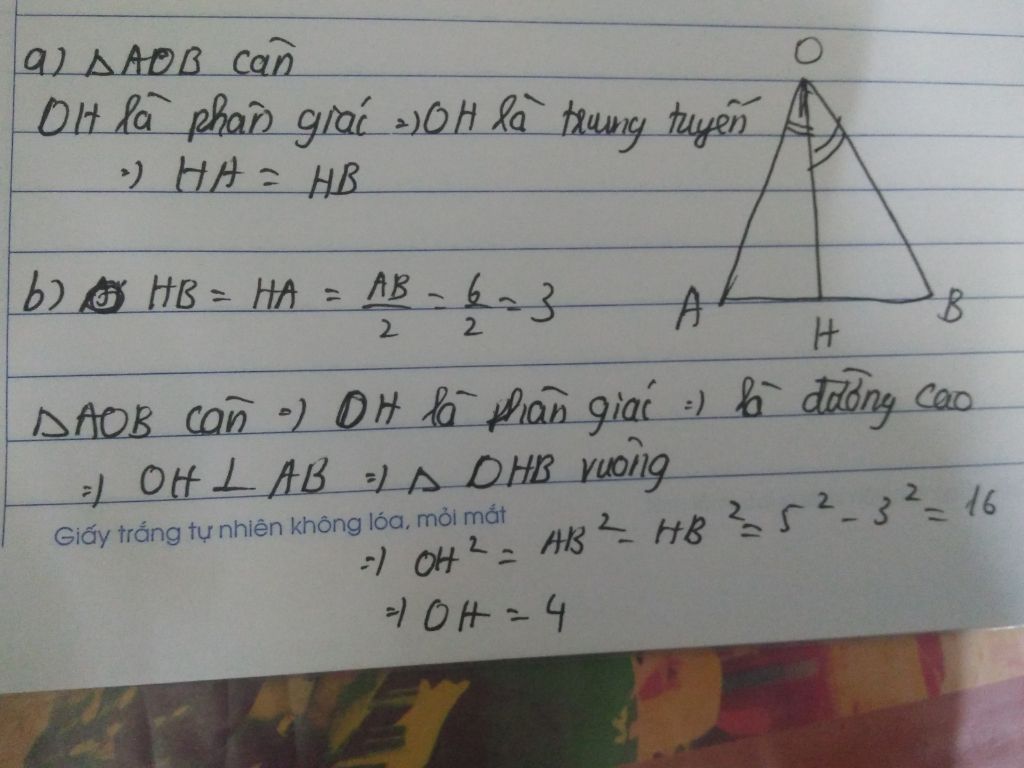 a) ΔAOB cân
O
OH là phân giác => OH là trung tuyến
=> HA = HB
b) HB = HA = AB/2 = 6/2 = 3
A
B
H
ΔAOB cân => OH là phân giác => là đường cao
=> OH ⊥ AB => Δ OHB vuông
Giấy trắng tự nhiên không lóa, mỏi mắt
=> OH² = AB² - HB² = 5² - 3² = 16
=> OH = 4